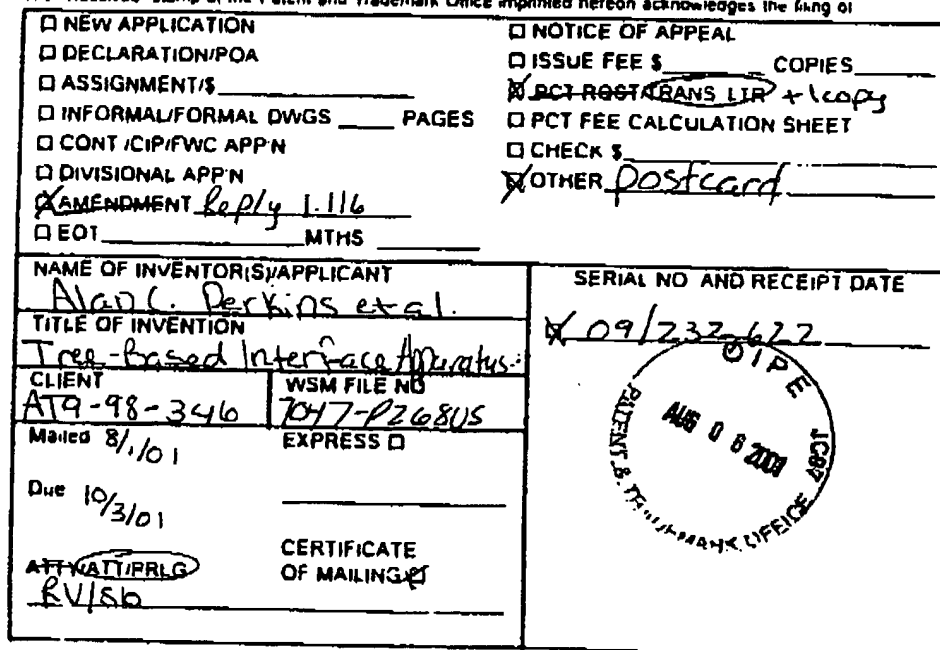 "Received" stamp of the Patent and Trademark Office imprinted hereon acknowledges the filing of
☐ NEW APPLICATION
☐ DECLARATION/POA
☐ ASSIGNMENT/$
☐ INFORMAL/FORMAL DWGS ____ PAGES
☐ CONT/CIP/FWC APP'N
☐ DIVISIONAL APP'N
☒ AMENDMENT Reply 1.116
☐ EOT ____ MTHS ____
☐ NOTICE OF APPEAL
☐ ISSUE FEE $ ____ COPIES ____
☒ PCT RQST/TRANS LTR + 1 copy
☐ PCT FEE CALCULATION SHEET
☐ CHECK $
☒ OTHER postcard
NAME OF INVENTOR(S)/APPLICANT
Alan C. Perkins et al.
TITLE OF INVENTION
Tree-Based Interface Apparatus
CLIENT
AT9-98-346
WSM FILE NO
7047-P268US
Mailed 8/1/01
EXPRESS ☐
Due 10/3/01
CERTIFICATE
OF MAILING ☒
ATTY/ATT/PRLG
RV/sb
SERIAL NO AND RECEIPT DATE
☒ 09/232,622
OIPE
AUG 06 2001
PATENT & TRADEMARK OFFICE